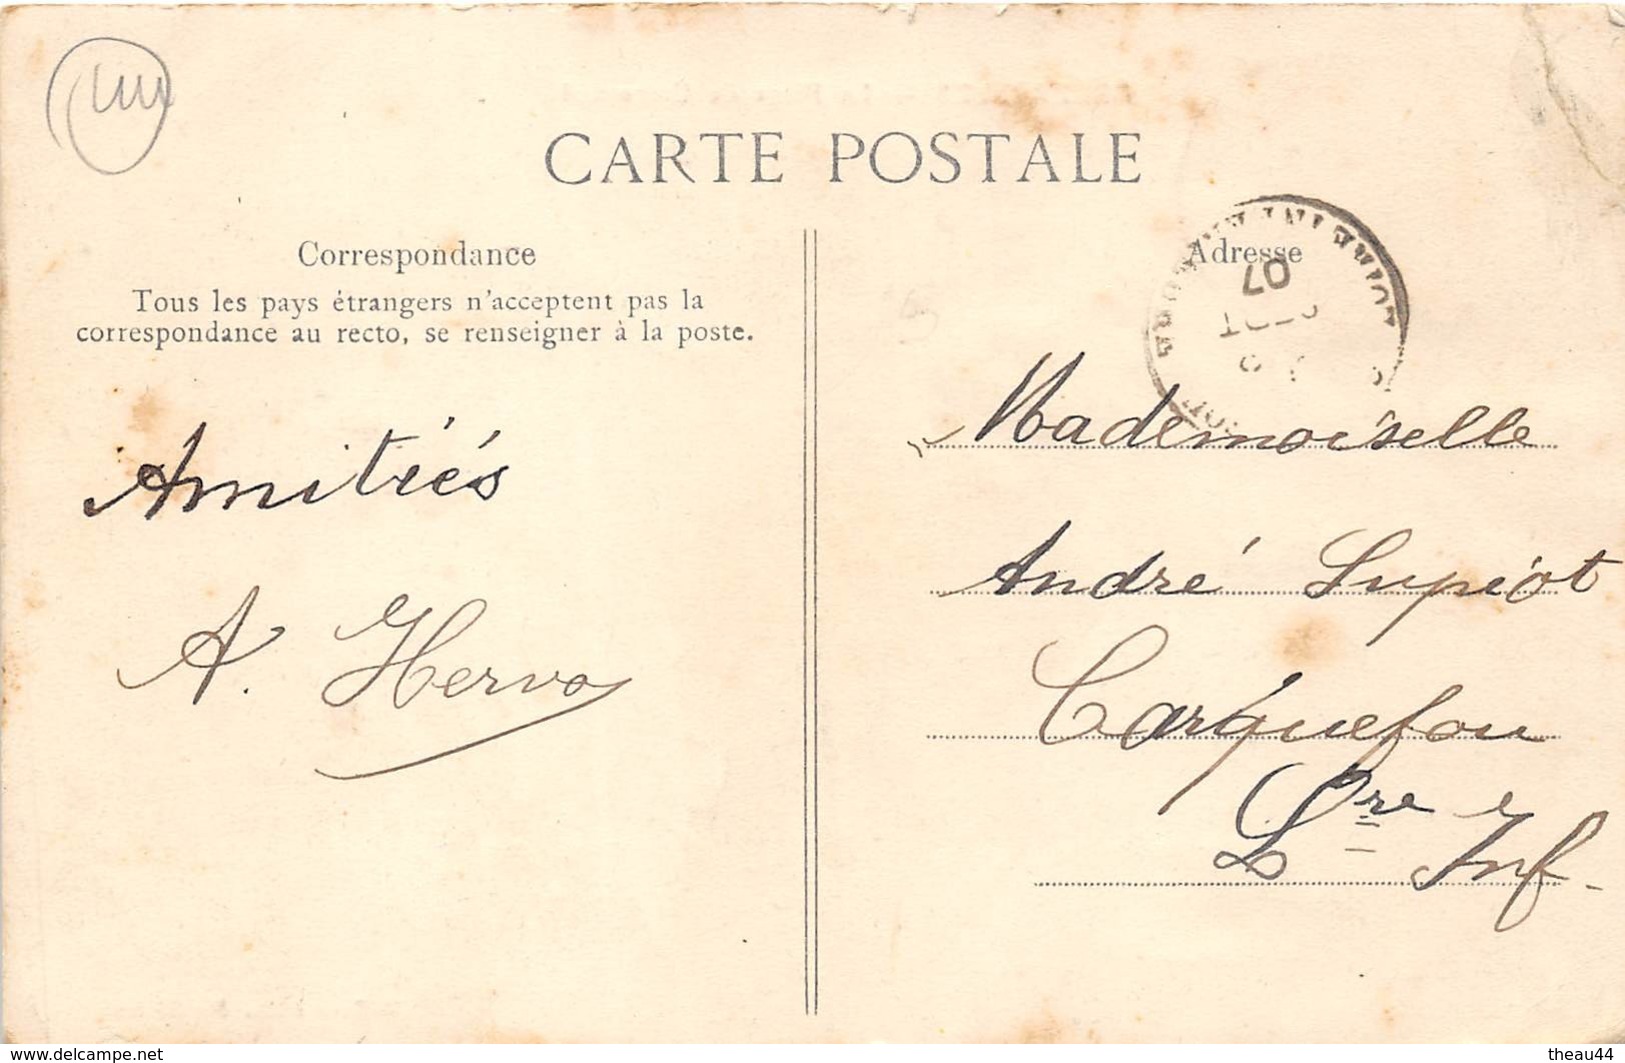 CARTE POSTALE
Correspondance
Tous les pays étrangers n'acceptent pas la
correspondance au recto, se renseigner à la poste.
Amitiés
A. Hervo
Adresse
07
Mademoiselle
André Supiot
Carquefou
Lre Inf.
www.delcampe.net
theau44